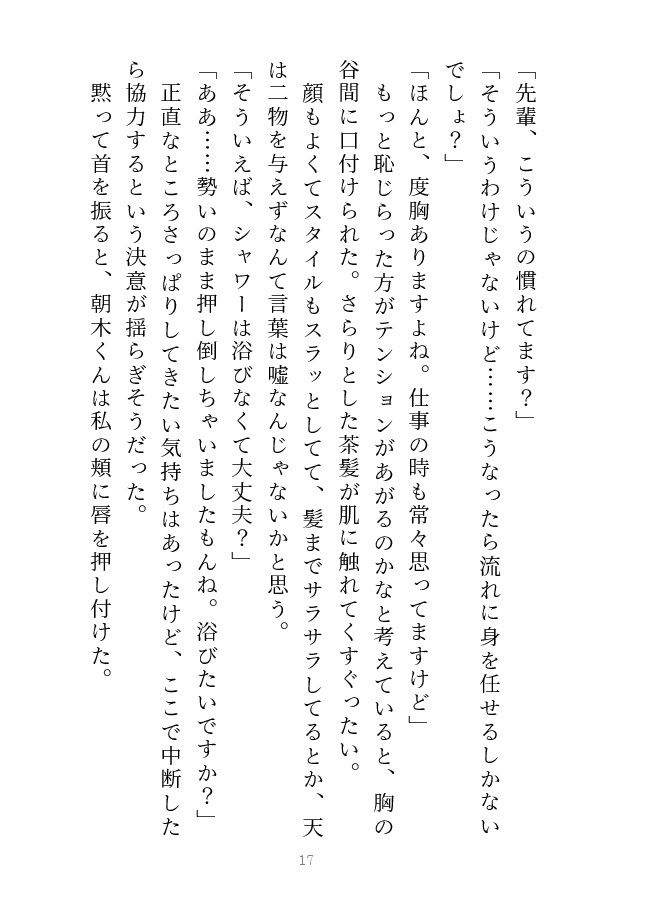 「先輩、こういうの慣れてます？」
「そういうわけじゃないけど……こうなったら流れに身を任せるしかない
でしょ？」
「ほんと、度胸ありますよね。仕事の時も常々思ってますけど」
　もっと恥じらった方がテンションがあがるのかなと考えていると、胸の
谷間に口付けられた。さらりとした茶髪が肌に触れてくすぐったい。
　顔もよくてスタイルもスラッとしてて、髪までサラサラしてるとか、天
は二物を与えずなんて言葉は嘘なんじゃないかと思う。
「そういえば、シャワーは浴びなくて大丈夫？」
「ああ……勢いのまま押し倒しちゃいましたもんね。浴びたいですか？」
　正直なところさっぱりしてきたい気持ちはあったけど、ここで中断した
ら協力するという決意が揺らぎそうだった。
　黙って首を振ると、朝木くんは私の頬に唇を押し付けた。
17